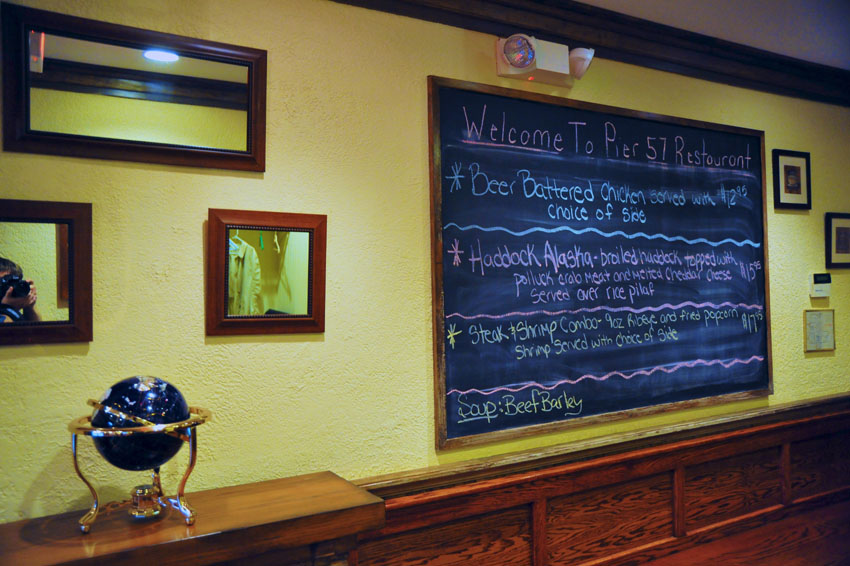 Welcome To Pier 57 Restaurant
* Beer Battered Chicken served with $12.95
choice of Side
* Haddock Alaska - broiled haddock topped with
polluck crab meat and Melted Cheddar Cheese $15.95
Served over rice pilaf
* Steak & Shrimp Combo - 9oz Ribeye and fried popcorn $17.95
Shrimp Served with choice of Side
Soup: Beef Barley